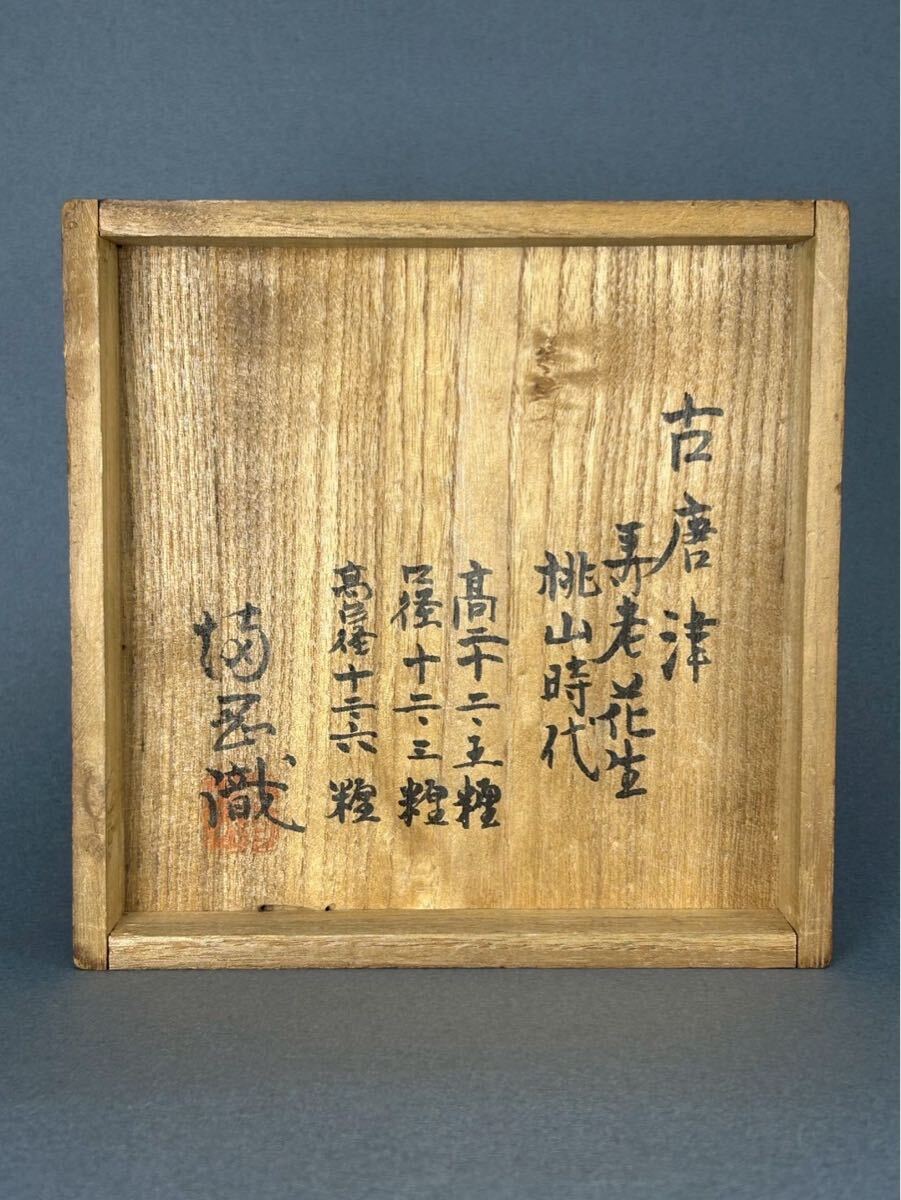 古唐津
寿老花生
桃山時代
高二十二・五糎
口径十二・三糎
高台径十二・六糎
識